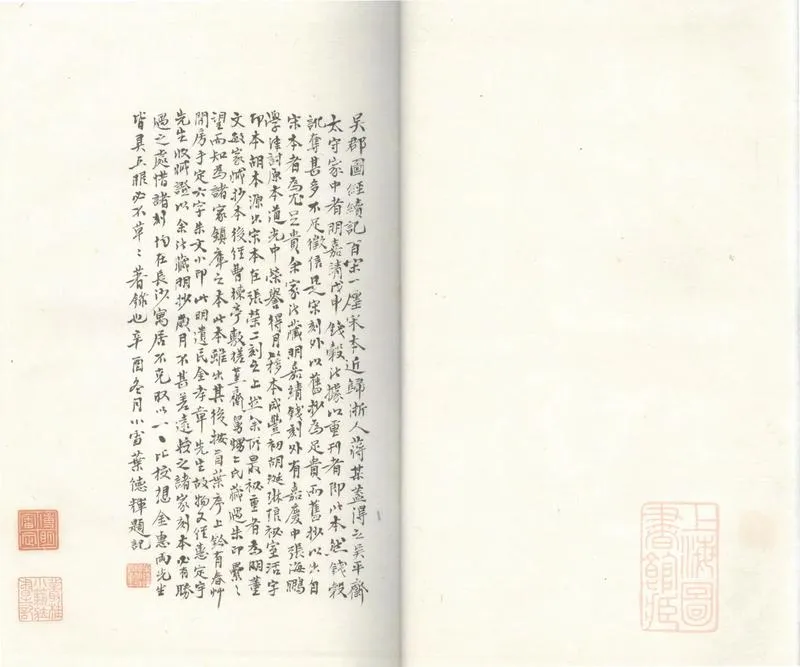 吳郡圖經續記百宋一廛宋本近歸浙人蔣某蓋得之吳平齋
太守家中者明嘉靖戊申錢穀所據以重刊者即此本然錢穀
訛奪甚多不足徵信是宋刻外以舊抄為足貴而舊抄以出自
宋本者為尤足貴余家所藏明嘉靖錢刻外有嘉慶中張海鵬
學津討原本道光中榮譽得月簃本咸豐初胡珽琳琅祕室活字
印本胡本源出宋本在張榮二刻之上然余所最祕重者為明董
文敏家藏抄本後經曹楝亭敷槎堇齋舅甥二氏藏過朱印纍〻
望而知為諸家鎮庫之本此本雖出其後按首葉序上鈐有春艸
閒房手定六字朱文小印此明遺民金孝章先生故物又經惠定宇
先生收藏證以余所藏明抄歲月不甚差遠校之諸家刻本必有勝
過之處惜諸刻均在長沙寓居不克取以一〻比校想金惠兩先生
皆具五眼必不草〻著錄也辛酉冬月小雪葉德輝題記
上海圖
書館藏